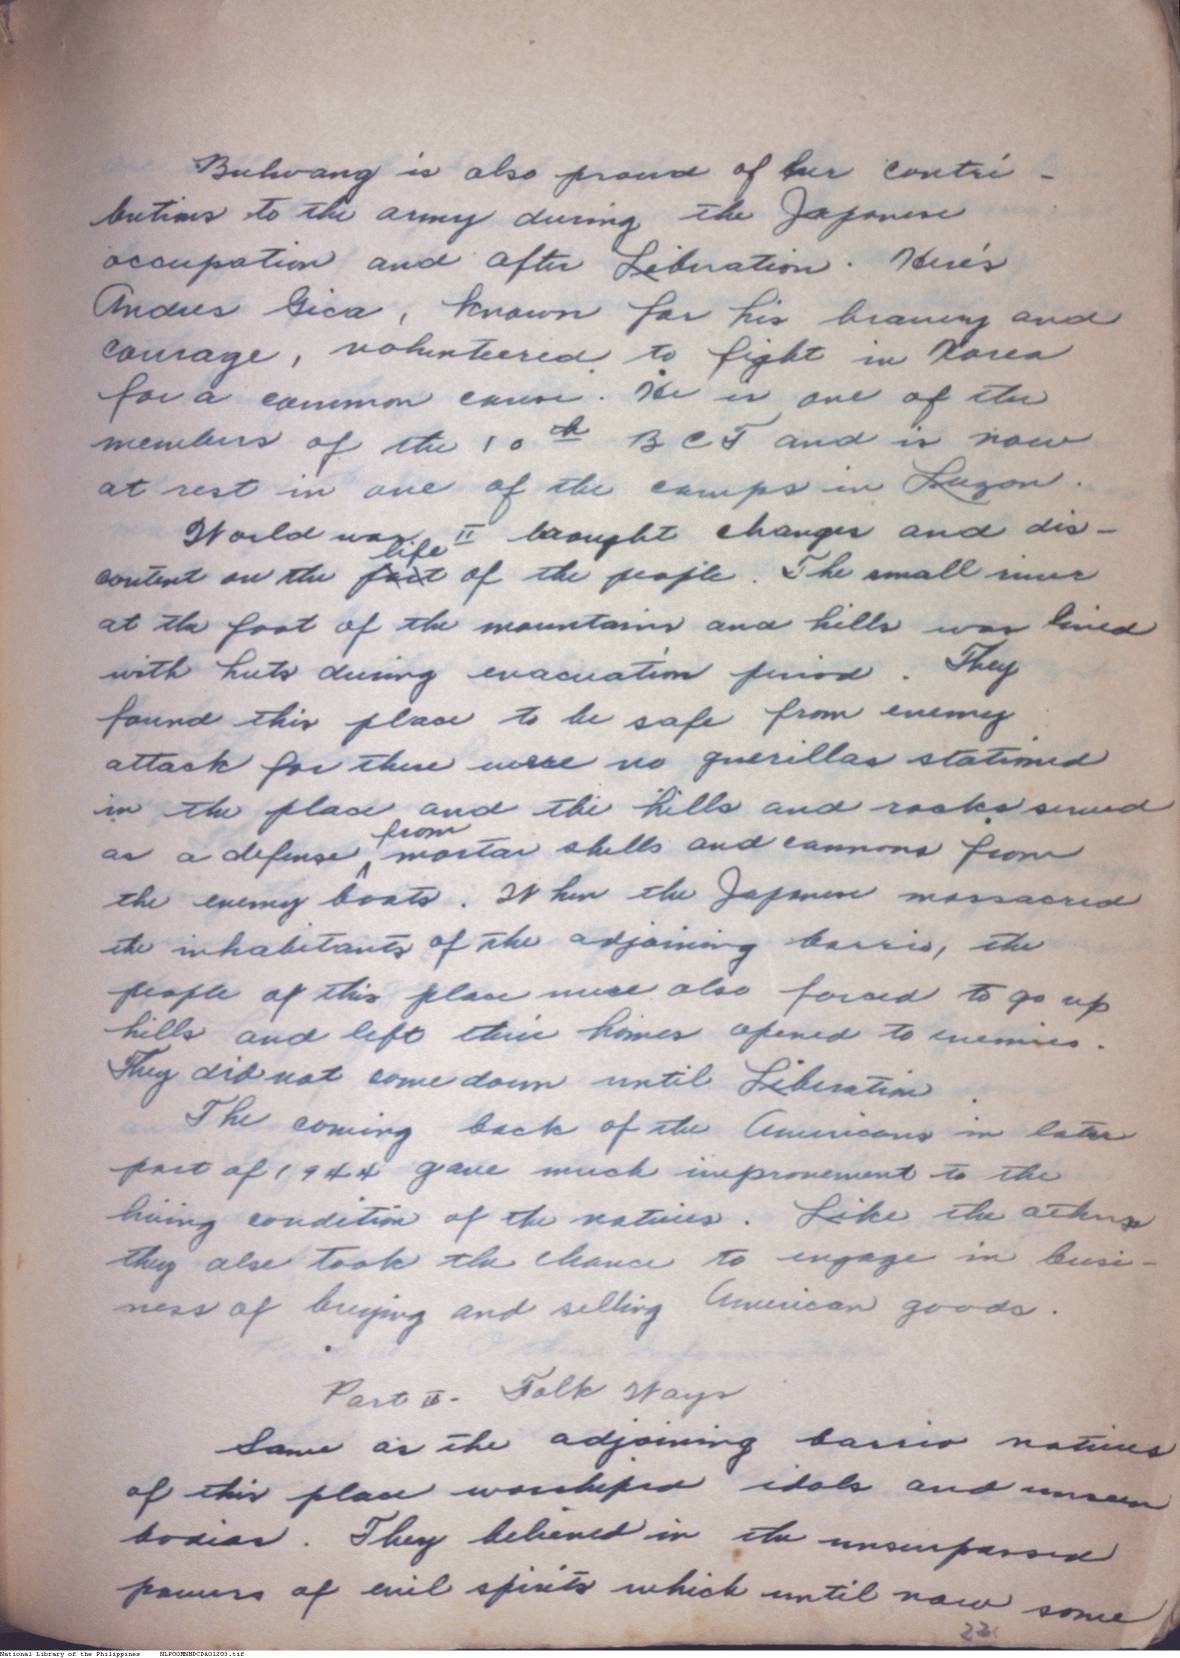 Buhvang is also proud of her contri-
butions to the army during the Japanese
occupation and after Liberation. Here's
Andres Gica, known for his bravery and
courage, volunteered to fight in Korea
for a common cause. He is one of the
members of the 10th BCT and is now
at rest in one of the camps in Luzon.
World war II brought changes and dis-
content on the life of the people. The small river
at the foot of the mountains and hills was lined
with huts during evacuation period. They
found this place to be safe from enemy
attack for there were no guerillas stationed
in the place and the hills and rocks served
as a defense from mortar shells and cannons from
the enemy boats. When the Japanese massacred
the inhabitants of the adjoining barrio, the
people of this place were also forced to go up
hills and left their homes opened to enemies.
They did not come down until Liberation.
The coming back of the Americans in later
part of 1944 gave much improvement to the
living condition of the natives. Like the others
they also took the chance to engage in busi-
ness of buying and selling American goods.
Part II- Folk Ways
Same as the adjoining barrio natives
of this place worshiped idols and unseen
bodies. They believed in the unsurpassed
powers of evil spirits which until now some
22
National Library of the Philippines NLPOOMNHDCDA01203.tif